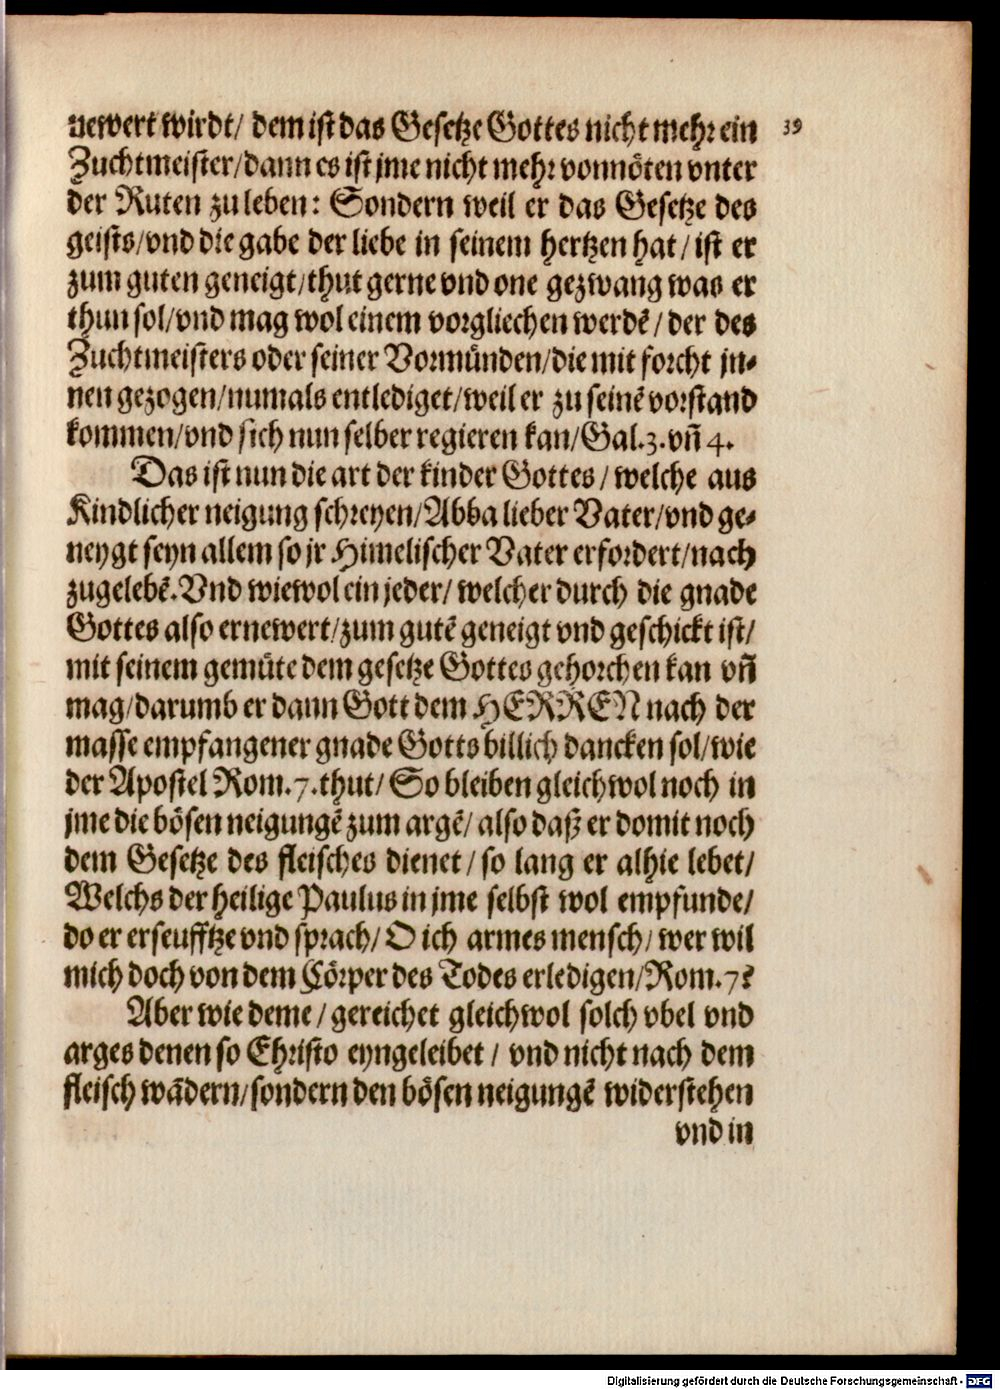 newert wirdt/ dem ist das Gesetze Gottes nicht mehr ein 39
Zuchtmeister/dann es ist jme nicht mehr vonnöten vnter
der Ruten zu leben: Sondern weil er das Gesetze des
geists/vnd die gabe der liebe in seinem hertzen hat/ ist er
zum guten geneigt/thut gerne vnd one gezwang was er
thun sol/vnd mag wol einem vorgliechen werdē/ der des
Zuchtmeisters oder seiner Vormünden/die mit forcht jn-
nen gezogen/numals entlediget/weil er zu seinē vorstand
kommen/vnd sich nun selber regieren kan/Gal.3.vn̄ 4.
Das ist nun die art der kinder Gottes/ welche aus
Kindlicher neigung schreyen/Abba lieber Vater/vnd ge-
neygt seyn allem so jr Himelischer Vater erfordert/nach
zugelebē.Vnd wiewol ein jeder/ welcher durch die gnade
Gottes also ernewert/zum gutē geneigt vnd geschickt ist/
mit seinem gemüte dem gesetze Gottes gehorchen kan vn̄
mag/darumb er dann Gott dem HERREN nach der
masse empfangener gnade Gotts billich dancken sol/wie
der Apostel Rom.7.thut/ So bleiben gleichwol noch in
jme die bösen neigungē zum argē/ also daß er domit noch
dem Gesetze des fleisches dienet/ so lang er alhie lebet/
Welchs der heilige Paulus in jme selbst wol empfunde/
do er erseufftze vnd sprach/ O ich armes mensch/ wer wil
mich doch von dem Cörper des Todes erledigen/Rom.7?
Aber wie deme/ gereichet gleichwol solch vbel vnd
arges denen so Christo eyngeleibet/ vnd nicht nach dem
fleisch wādern/sondern den bösen neigungē widerstehen
vnd in
Digitalisierung gefördert durch die Deutsche Forschungsgemeinschaft - DFG